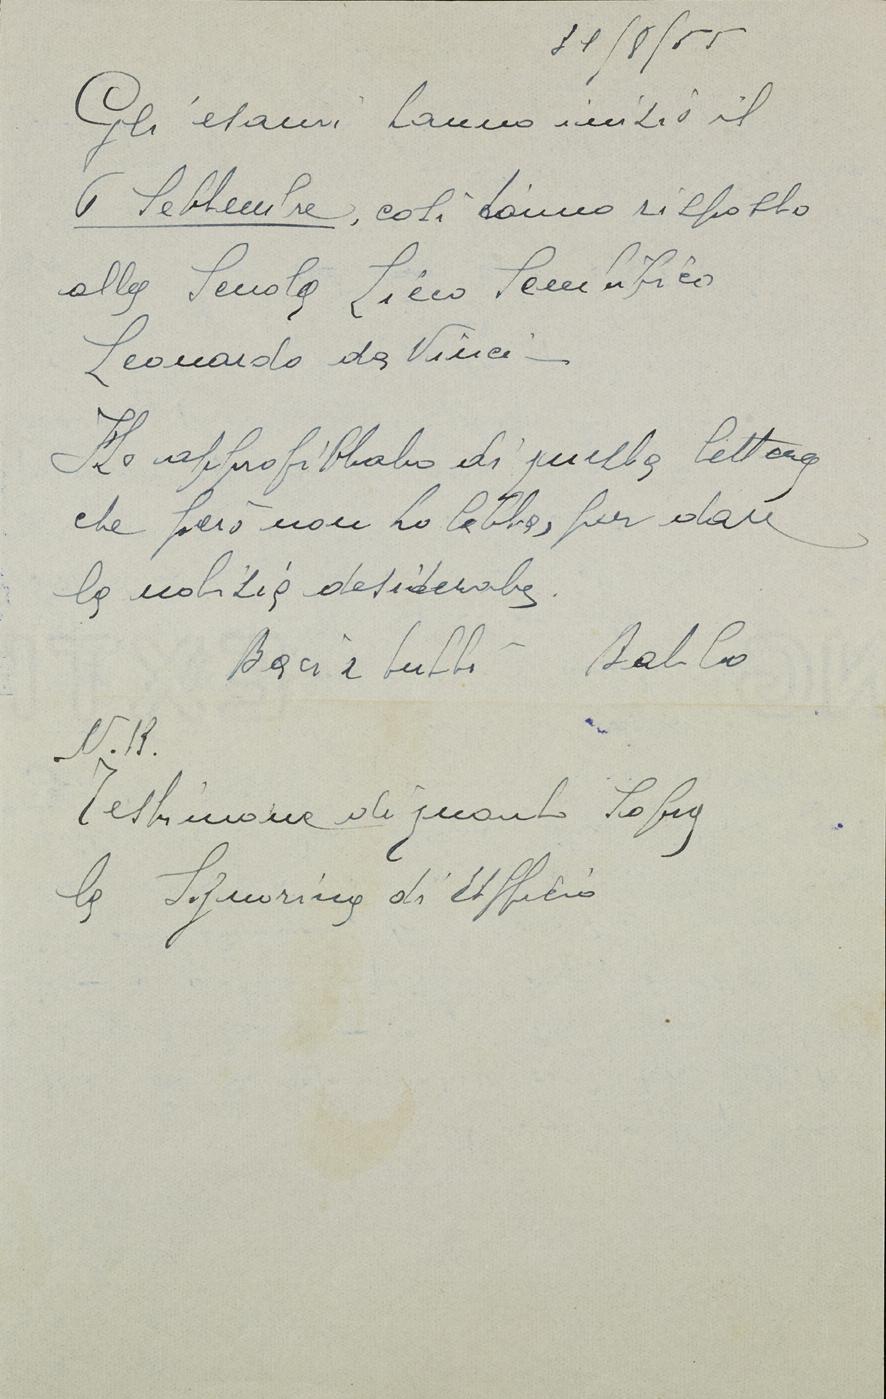 31/8/55
Gli esami hanno inizio il
6 Settembre, così hanno risposto
alla Scuola Liceo Scientifico
Leonardo da Vinci -
Ho approfittato di questa lettera
che però non ho letta, per dare
la notizia desiderata.
Baci a tutti Babbo
N.B.
Testimone di quanto sopra
la Signorina di Ufficio